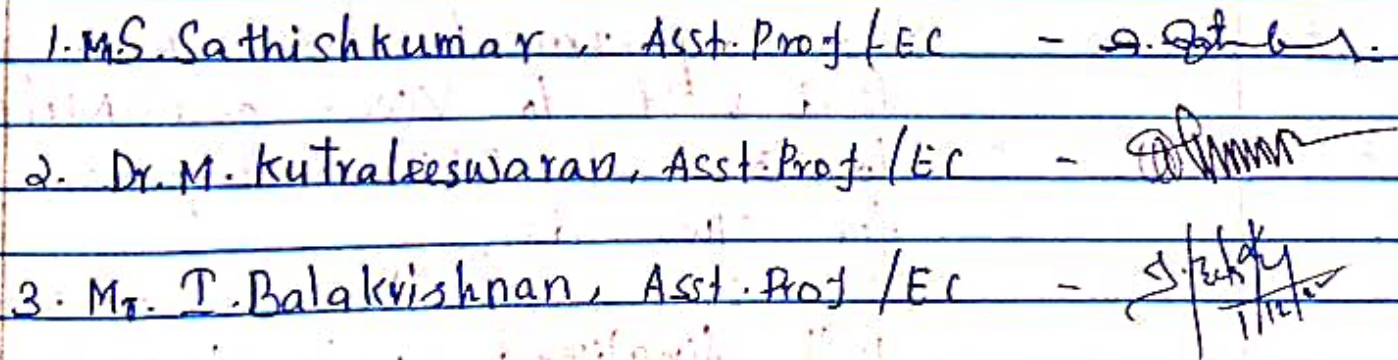 1. M.S. Sathishkumar, Asst. Prof / EC -
2. Dr. M. Kutraleeswaran, Asst. Prof. / EC -
3. Mr. I. Balakrishnan, Asst. Prof / EC -